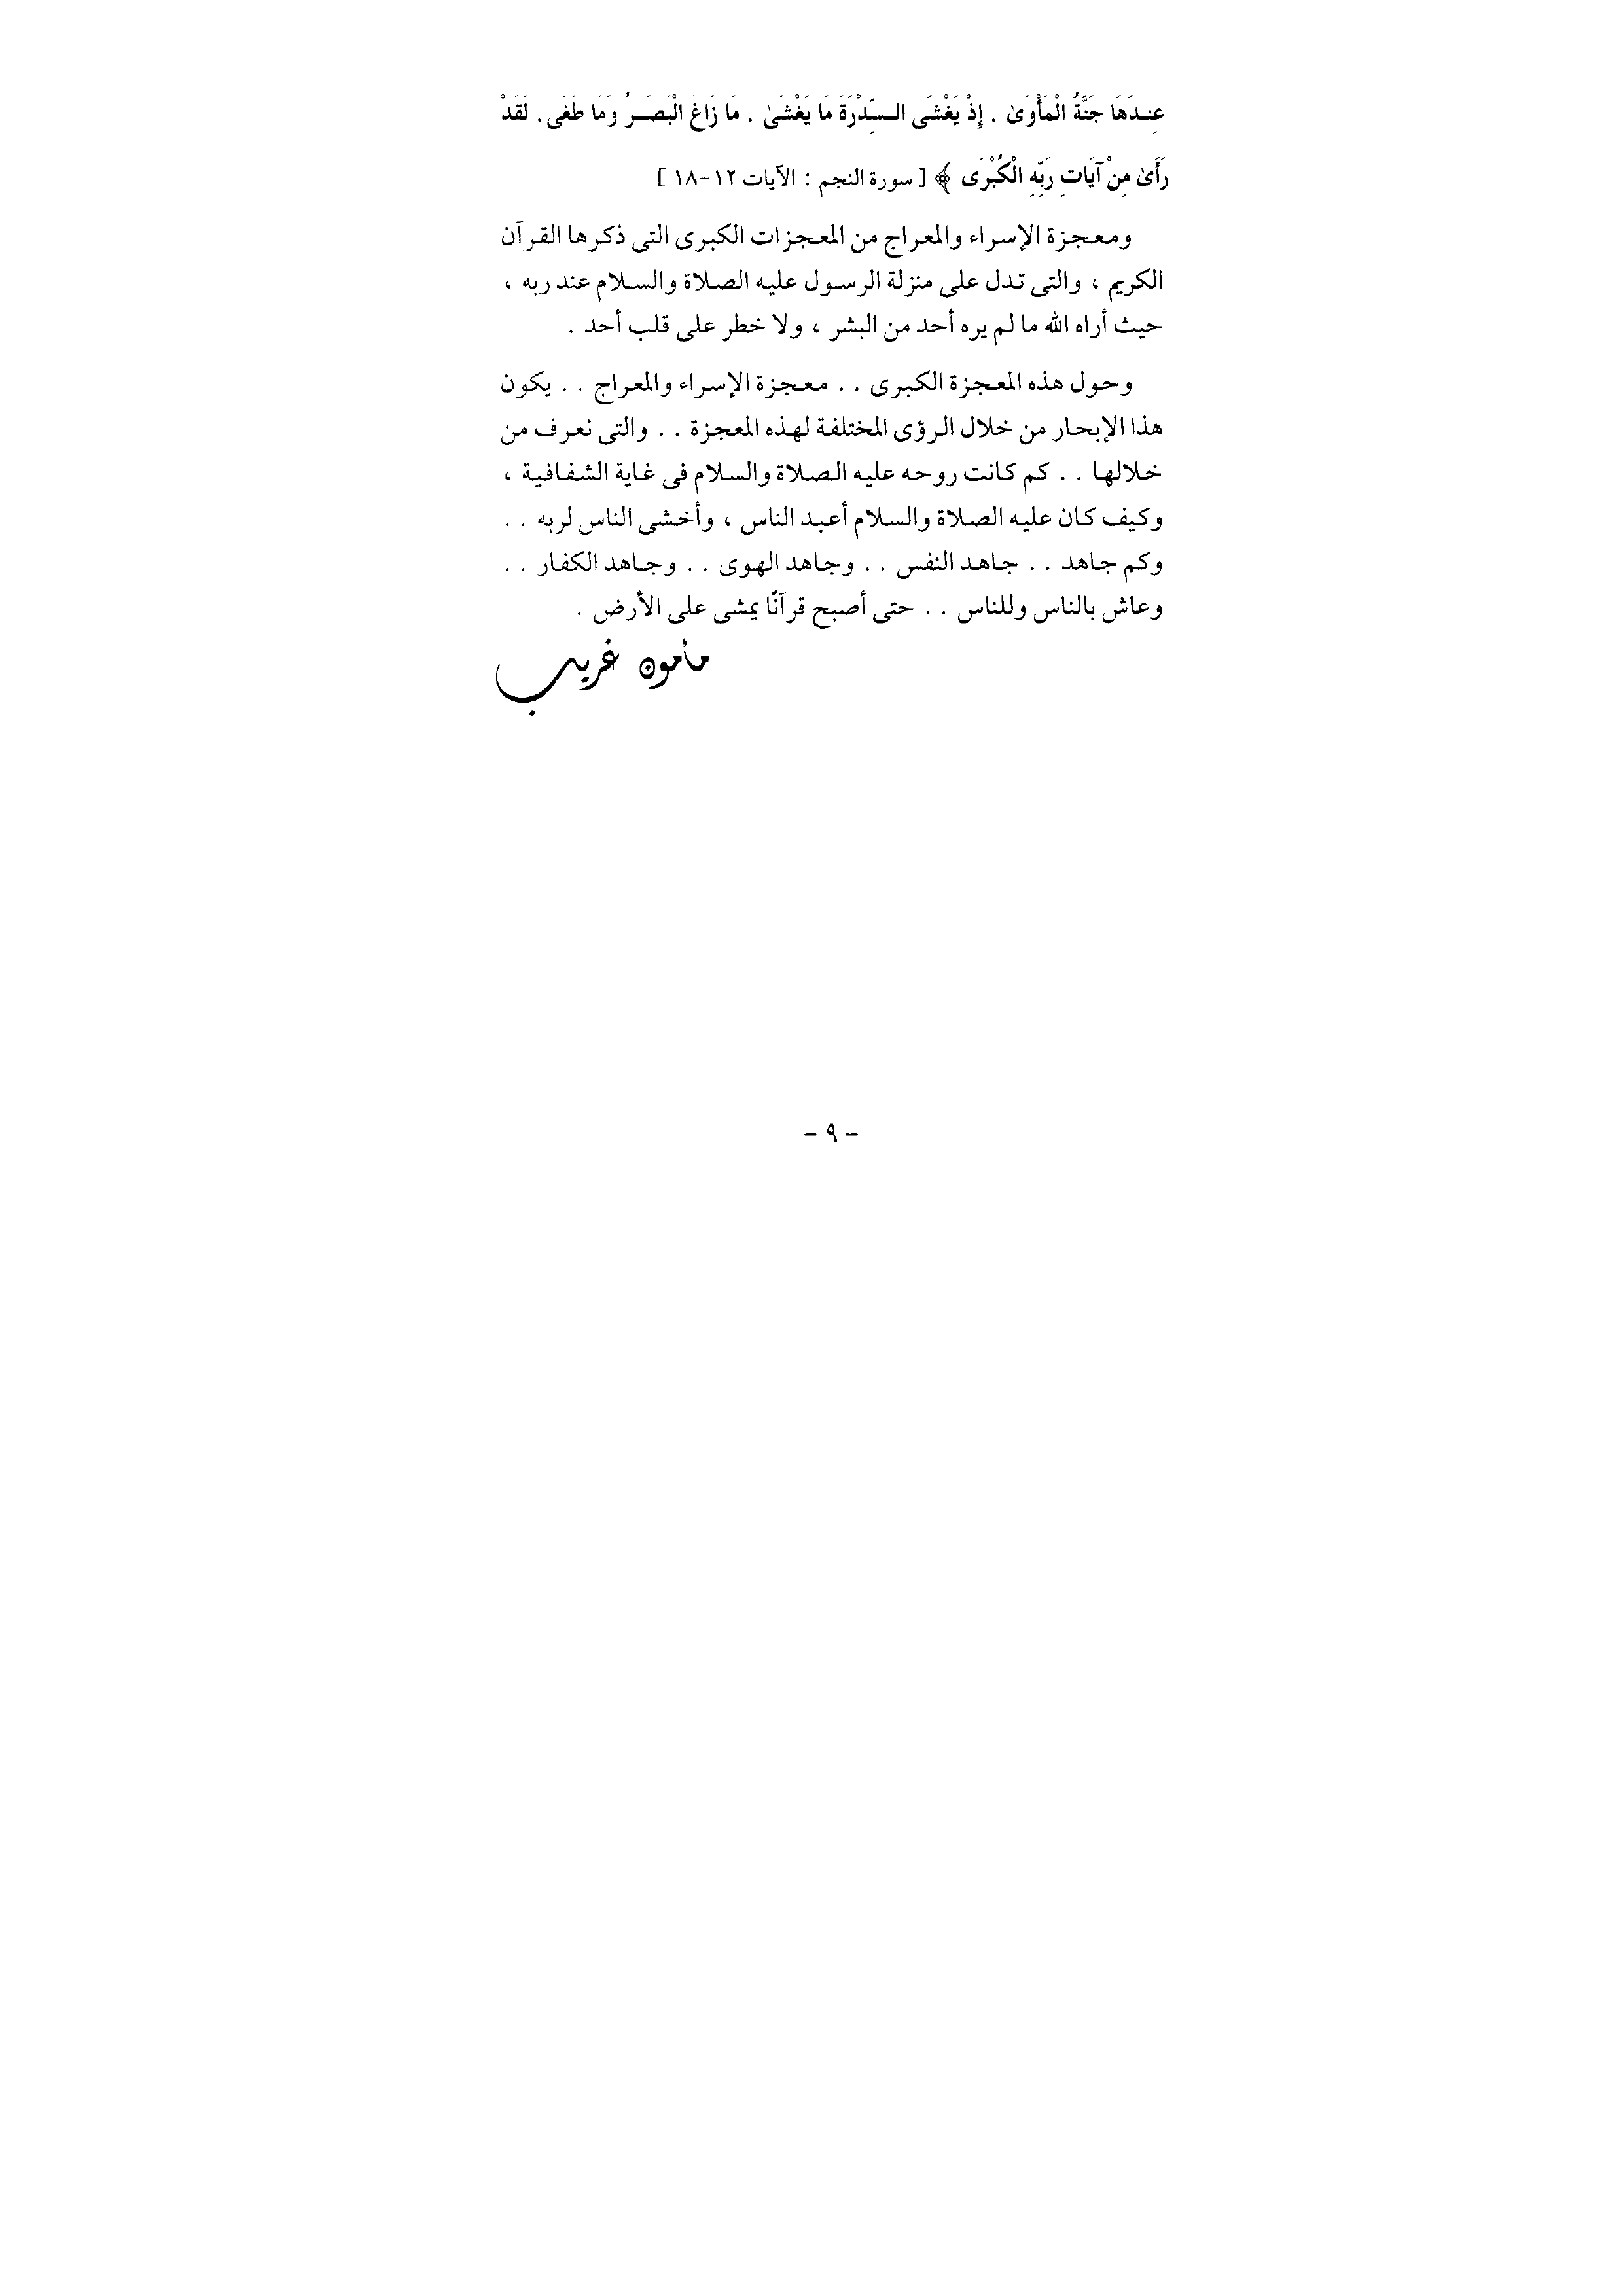 عِندَهَا جَنَّةُ الْمَأْوَىٰ . إِذْ يَغْشَى السِّدْرَةَ مَا يَغْشَىٰ . مَا زَاغَ الْبَصَرُ وَمَا طَغَى . لَقَدْ
رَأَىٰ مِنْ آيَاتِ رَبِّهِ الْكُبْرَى ﴾ [ سورة النجم : الآيات ١٢-١٨ ]
ومعجزة الإسراء والمعراج من المعجزات الكبرى التى ذكرها القرآن
الكريم ، والتى تدل على منزلة الرسول عليه الصلاة والسلام عند ربه ،
حيث أراه الله ما لم يره أحد من البشر ، ولا خطر على قلب أحد .
وحول هذه المعجزة الكبرى . . معجزة الإسراء والمعراج . . يكون
هذا الإبحار من خلال الرؤى المختلفة لهذه المعجزة . . والتى نعرف من
خلالها . . كم كانت روحه عليه الصلاة والسلام فى غاية الشفافية ،
وكيف كان عليه الصلاة والسلام أعبد الناس ، وأخشى الناس لربه . .
وكم جاهد . . جاهد النفس . . وجاهد الهوى . . وجاهد الكفار . .
وعاش بالناس وللناس . . حتى أصبح قرآنًا يمشى على الأرض .
مأمون غريب
- ٩ -